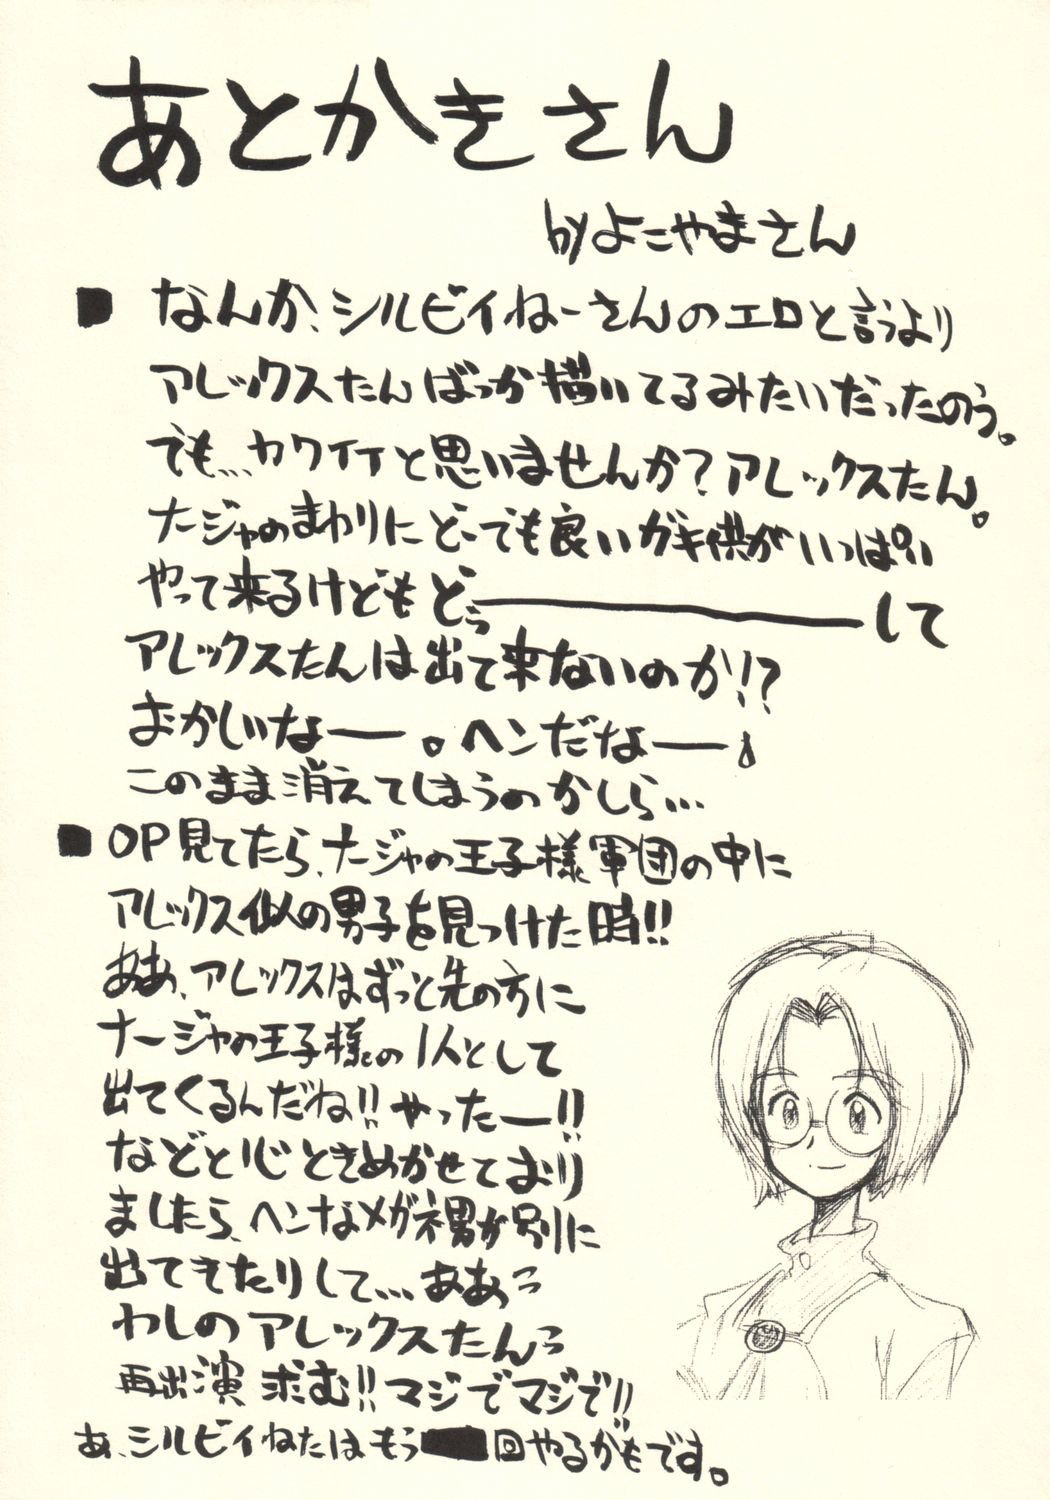 あとかきさん
byよこやまさん
■ なんか、シルビイねーさんのエロと言うより
アレックスたんばっか描いてるみたいだったのう。
でも…カワイイと思いませんか?アレックスたん。
ナージャのまわりにどーでも良いガキ供がいっぱい
やって来るけどもどぅ―――――して
アレックスたんは出て来ないのか!?
おかしいなー。ヘンだなー。
このまま消えてしまうのかしら…
■ OP見てたら、ナージャの王子様軍団の中に
アレックス似の男子を見つけた時!!
ああ、アレックスはずっと先の方に
ナージャの王子様の1人として
出てくるんだね!!やったー!!
などと心ときめかせており
ましたら、ヘンなメガネ男が別に
出てきたりして…ああっ
わしのアレックスたんっ
再出演求む!!マジでマジで!!
あ、シルビイねたはもう 回やるかもです。